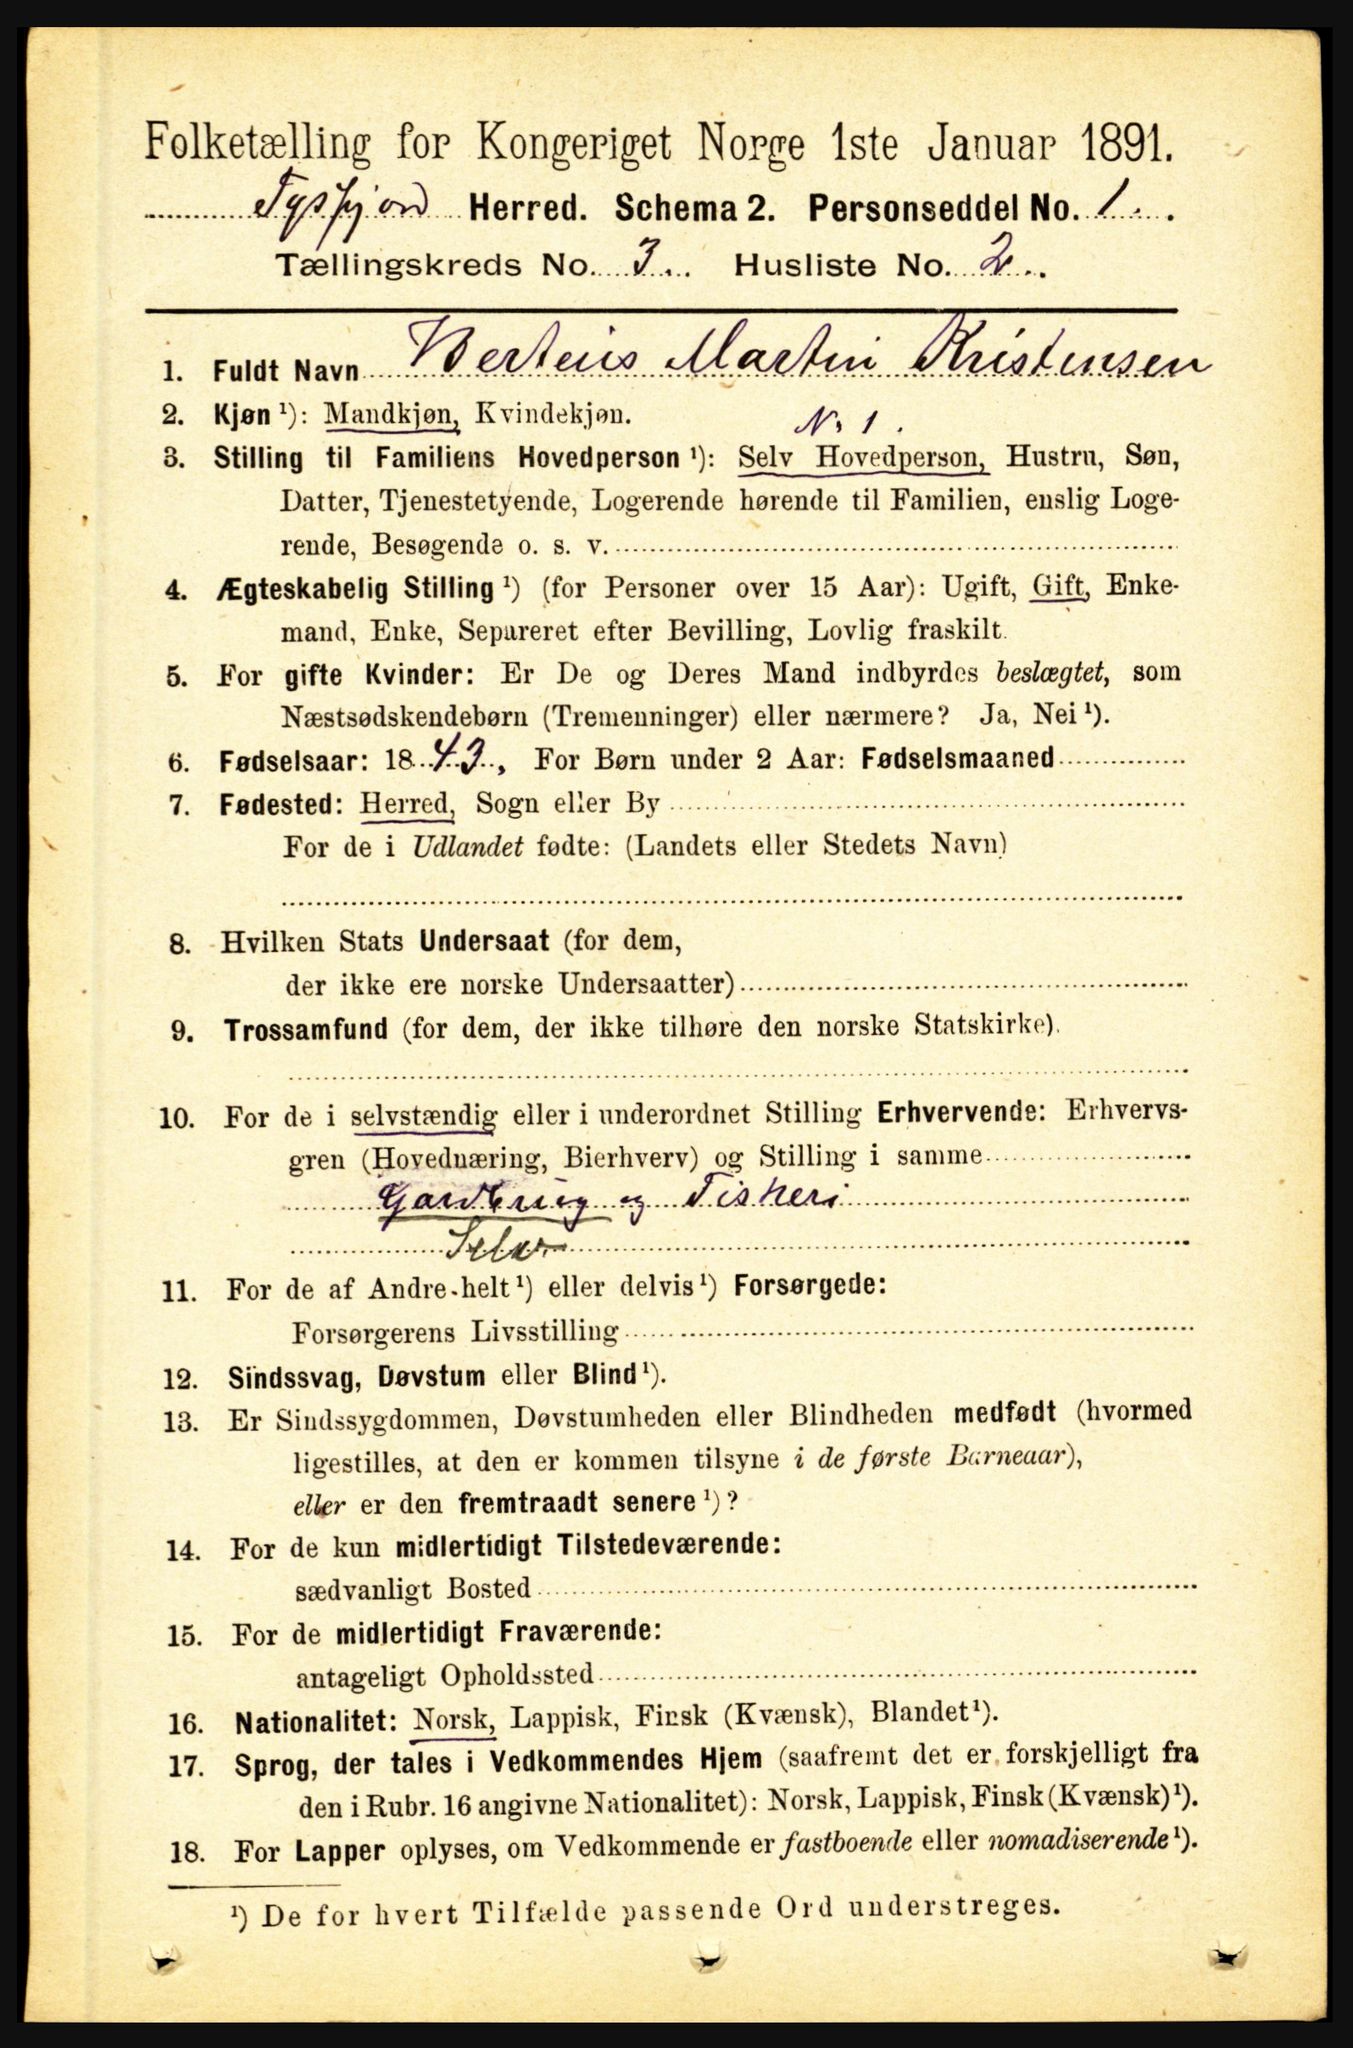 Folketælling for Kongeriget Norge 1ste Januar 1891.
Tysfjord Herred. Schema 2. Personseddel No. 1.
Tællingskreds No. 3. Husliste No. 2.
1. Fuldt Navn Berteus Martin Kristensen
2. Kjøn ¹): Mandkjøn, Kvindekjøn.
N. 1.
3. Stilling til Familiens Hovedperson ¹): Selv Hovedperson, Hustru, Søn,
Datter, Tjenestetyende, Logerende hørende til Familien, enslig Loge-
rende, Besøgende o. s. v.
4. Ægteskabelig Stilling ¹) (for Personer over 15 Aar): Ugift, Gift, Enke-
mand, Enke, Separeret efter Bevilling, Lovlig fraskilt.
5. For gifte Kvinder: Er De og Deres Mand indbyrdes beslægtet, som
Næstsødskendebørn (Tremenninger) eller nærmere? Ja, Nei ¹).
6. Fødselsaar: 1843. For Børn under 2 Aar: Fødselsmaaned
7. Fødested: Herred, Sogn eller By
For de i Udlandet fødte: (Landets eller Stedets Navn)
8. Hvilken Stats Undersaat (for dem,
der ikke ere norske Undersaatter)
9. Trossamfund (for dem, der ikke tilhøre den norske Statskirke).
10. For de i selvstændig eller i underordnet Stilling Erhvervende: Erhvervs-
gren (Hovednæring, Bierhverv) og Stilling i samme
Gardbrug og Fiskeri
Selv
11. For de af Andre helt ¹) eller delvis ¹) Forsørgede:
Forsørgerens Livsstilling
12. Sindssvag, Døvstum eller Blind ¹).
13. Er Sindssygdommen, Døvstumheden eller Blindheden medfødt (hvormed
ligestilles, at den er kommen tilsyne i de første Barneaar),
eller er den fremtraadt senere ¹)?
14. For de kun midlertidigt Tilstedeværende:
sædvanligt Bosted
15. For de midlertidigt Fraværende:
antageligt Opholdssted
16. Nationalitet: Norsk, Lappisk, Finsk (Kvænsk), Blandet ¹).
17. Sprog, der tales i Vedkommendes Hjem (saafremt det er forskjelligt fra
den i Rubr. 16 angivne Nationalitet): Norsk, Lappisk, Finsk (Kvænsk) ¹).
18. For Lapper oplyses, om Vedkommende er fastboende eller nomadiserende ¹).
¹) De for hvert Tilfælde passende Ord understreges.